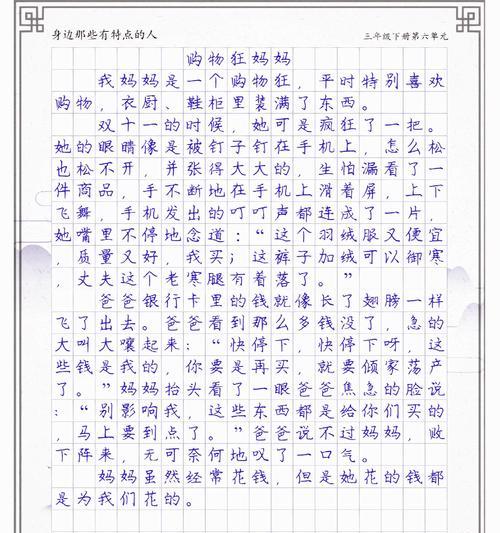 身边那些有特点的人
三年级下册第六单元
购物狂妈妈
我妈妈是一个购物狂，平时特别喜欢
购物，衣厨、鞋柜里装满了东西。
双十一的时候，她可是疯狂了一把。
她的眼睛像是被钉子钉在手机上，怎么松
也松不开，并张得大大的，生怕漏看了一
件商品，手不断地在手机上滑着屏，上下
飞舞，手机发出的叮叮声都连成了一片，
她嘴里不停地念道：“这个羽绒服又便宜
，质量又好，我买；这裤子加绒可以御寒
，丈夫这个老寒腿有着落了。”
爸爸银行卡里的钱就像长了翅膀一样
飞了出去。爸爸看到那么多钱没了，急的
大叫大嚷起来：“快停下，快停下呀，这
些钱是我的，你要是再买，就要倾家荡产
了。”妈妈抬头看了一眼爸爸焦急的脸说
：“别影响我，这些东西都是给你们买的
，马上要到点了。”爸爸说不过妈妈，败
下阵来，无可奈何地叹了一口气。
妈妈虽然经常花钱，但是她花的钱都
是为我们花的。